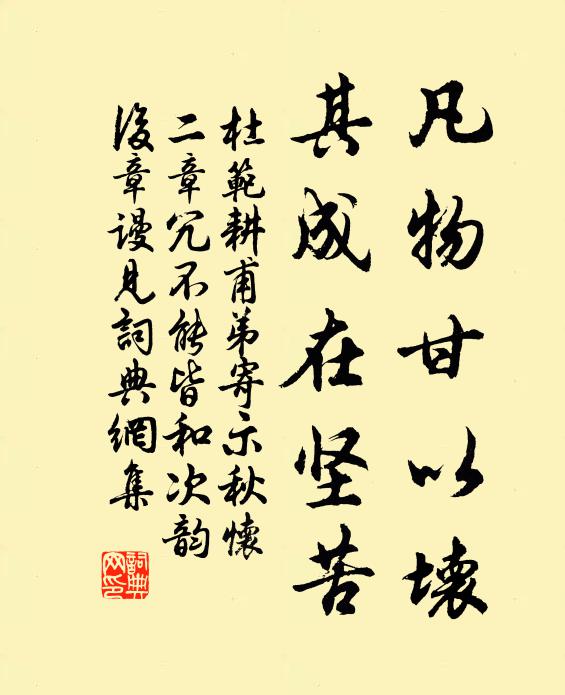 凡物甘以壞
其成在坚苦
杜範耕甫弟寄示秋懷
二章冗不能皆和次韵
後章谩見詞典網集
詞典网印